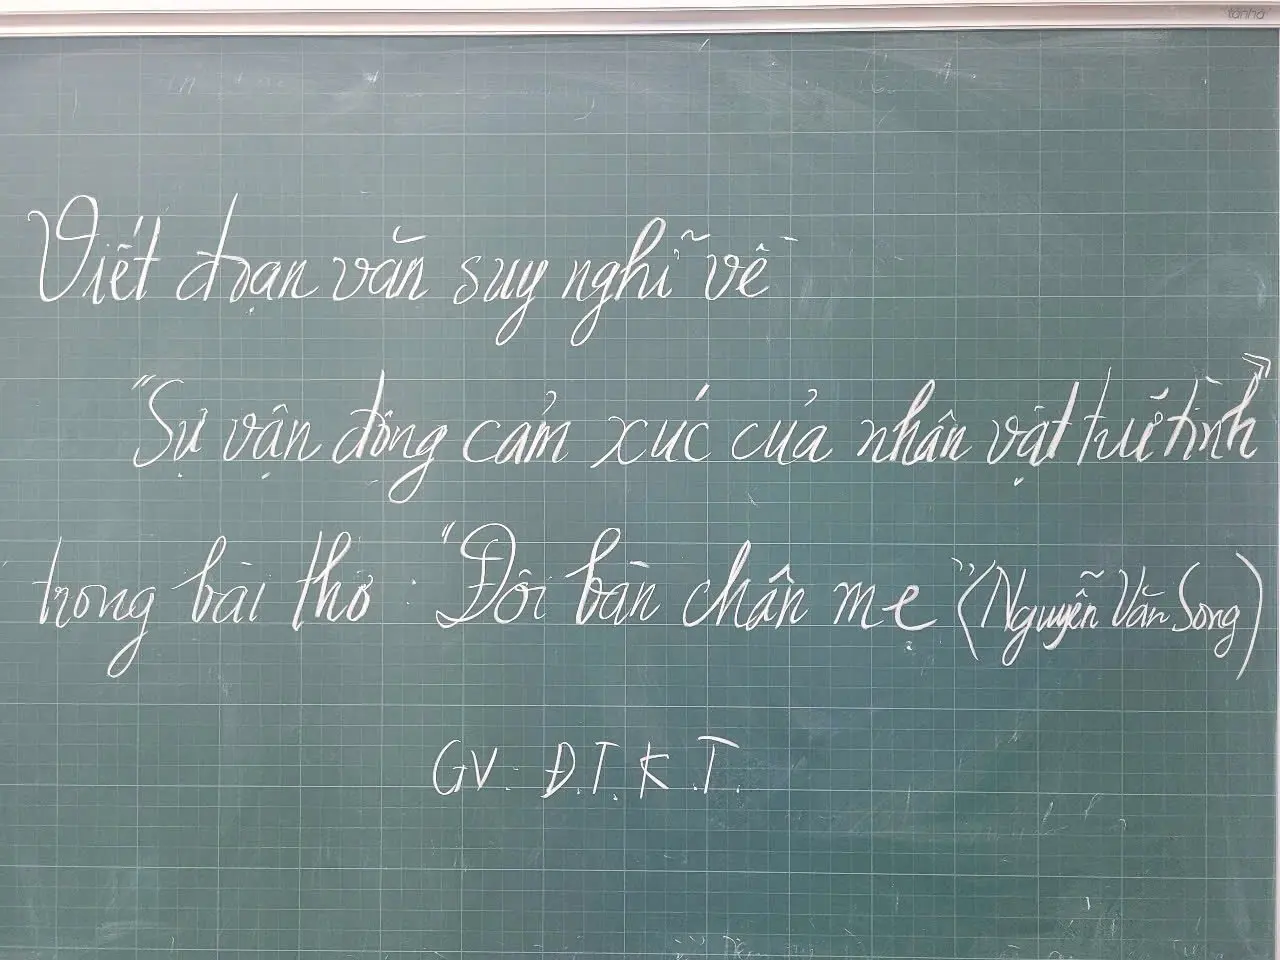 tânhà
Viết đoạn văn suy nghĩ về
"Sự vận động cảm xúc của nhân vật trữ tình"
trong bài thơ: "Đôi bàn chân mẹ" (Nguyễn Văn Song)
GV: Đ.T.K.T.